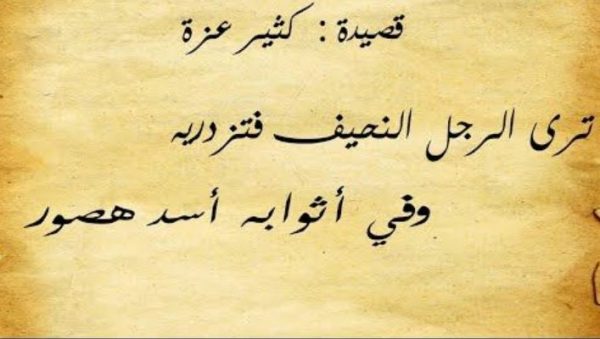 قصيدة : كثير عزة
ترى الرجل النحيف فتزدريه
وفي أثوابه أسد هصور